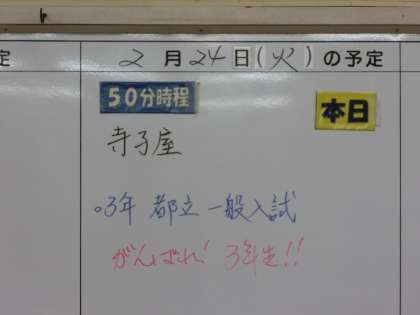 定
2月24日(火)の予定
50分時程
本日
寺子屋
○3年 都立一般入試
がんばれ! 3年生!!